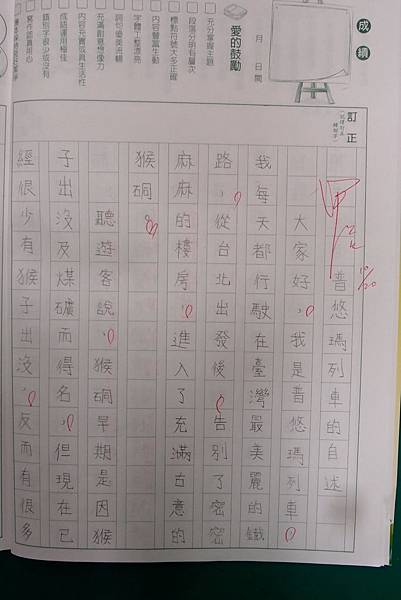 成績
月 日 閱
愛的鼓勵
充分掌握主題
段落分明有層次
標點符號大多正確
內容豐富生動
字體工整漂亮
詞句優美流暢
充滿創意想像力
內容充實或具生活性
成語運用極佳
錯別字很少或沒有
寫作認真用心
訂正
甲
10/20
普悠瑪列車的自述
大家好,我是普悠瑪列車。
我每天都行駛在臺灣最美麗的鐵
路,從台北出發後,告別了密密
麻麻的樓房,進入了充滿古意的
猴硐。
聽遊客說,猴硐早期是因猴
子出沒及煤礦而得名,但現在已
經很少有猴子出沒,反而有很多